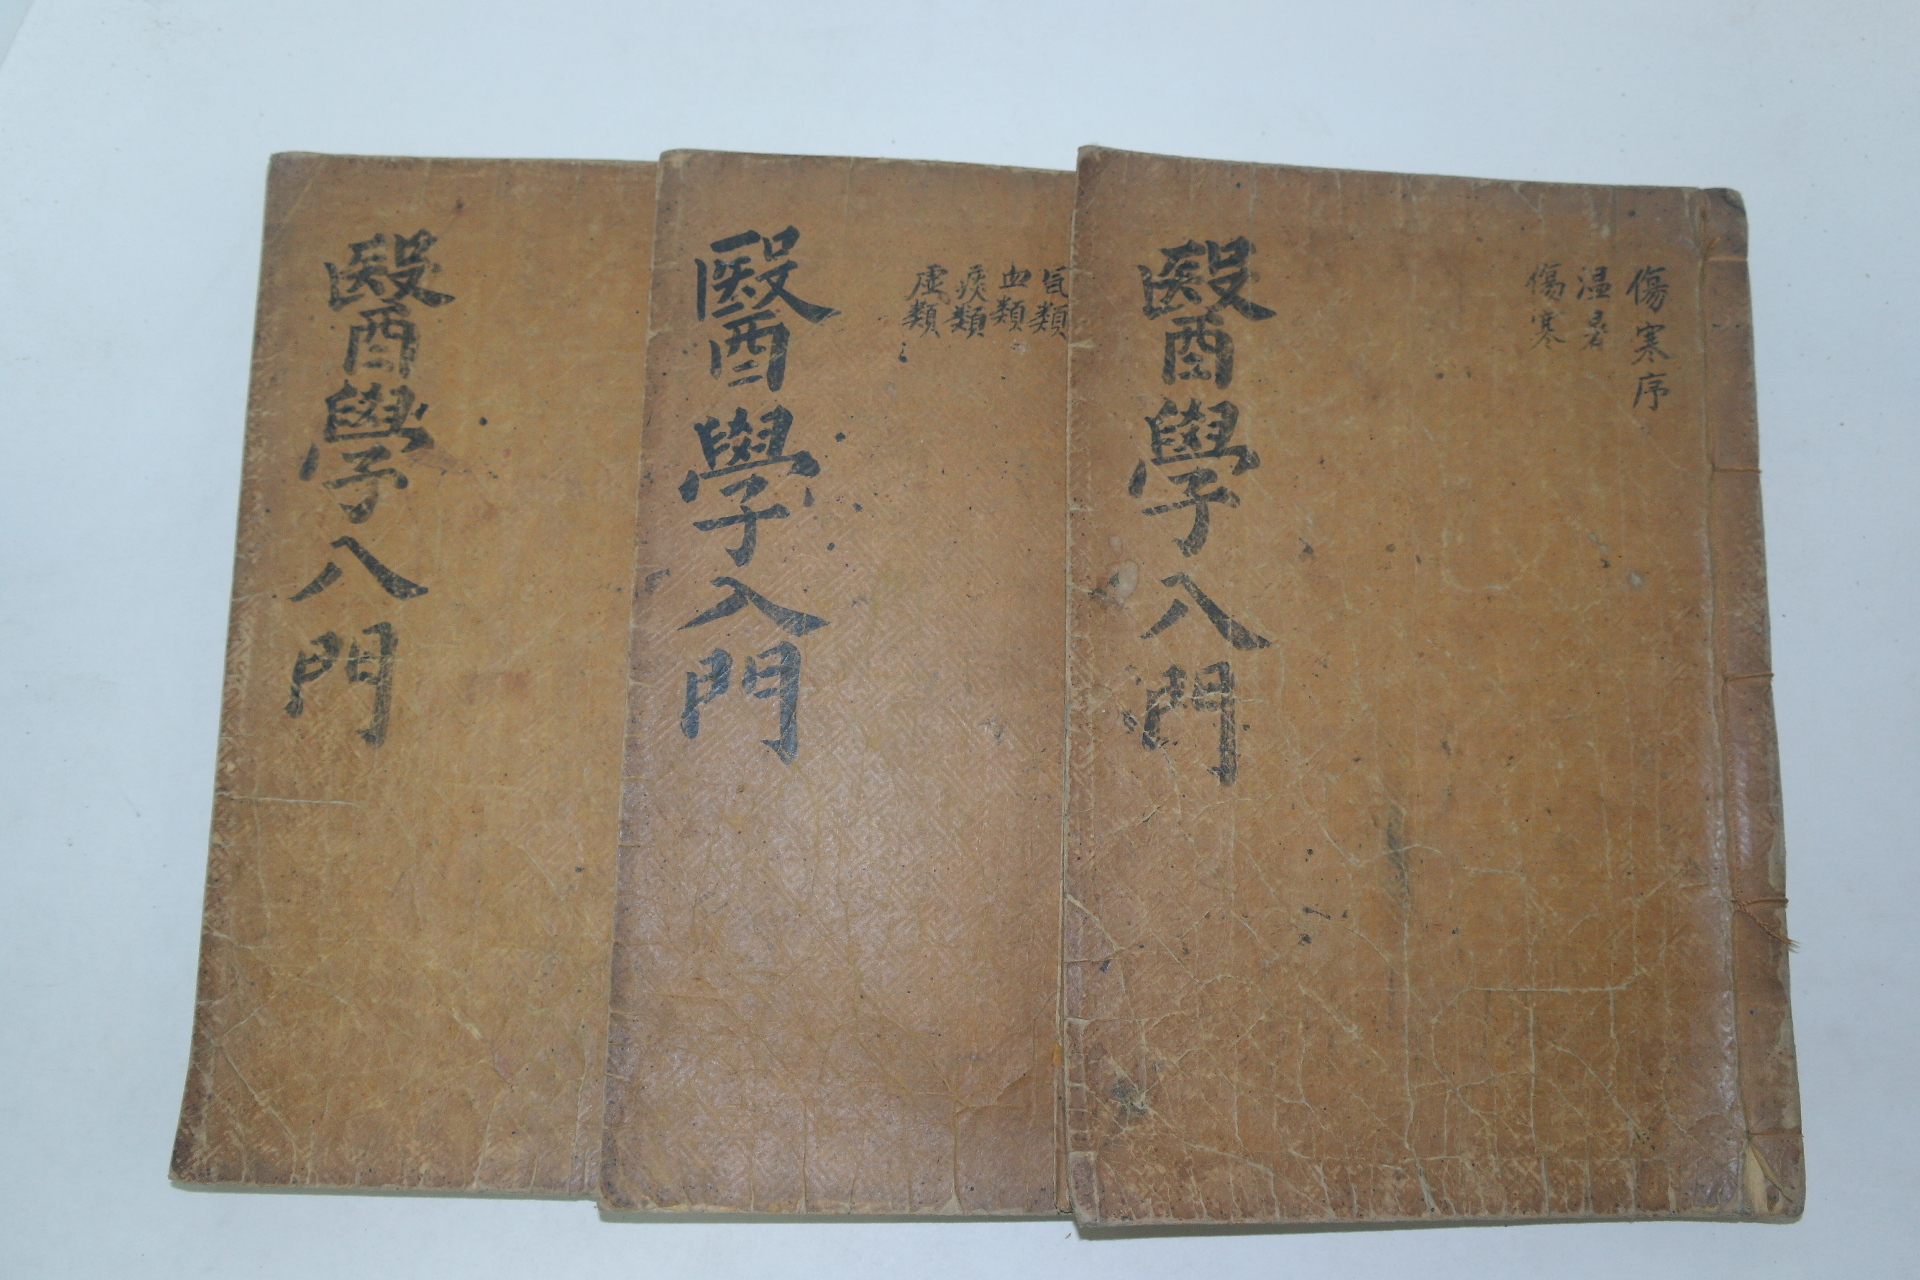 醫學入門
傷寒序
温暑
傷寒
醫學入門
气類
血類
痰類
虛類
醫學入門